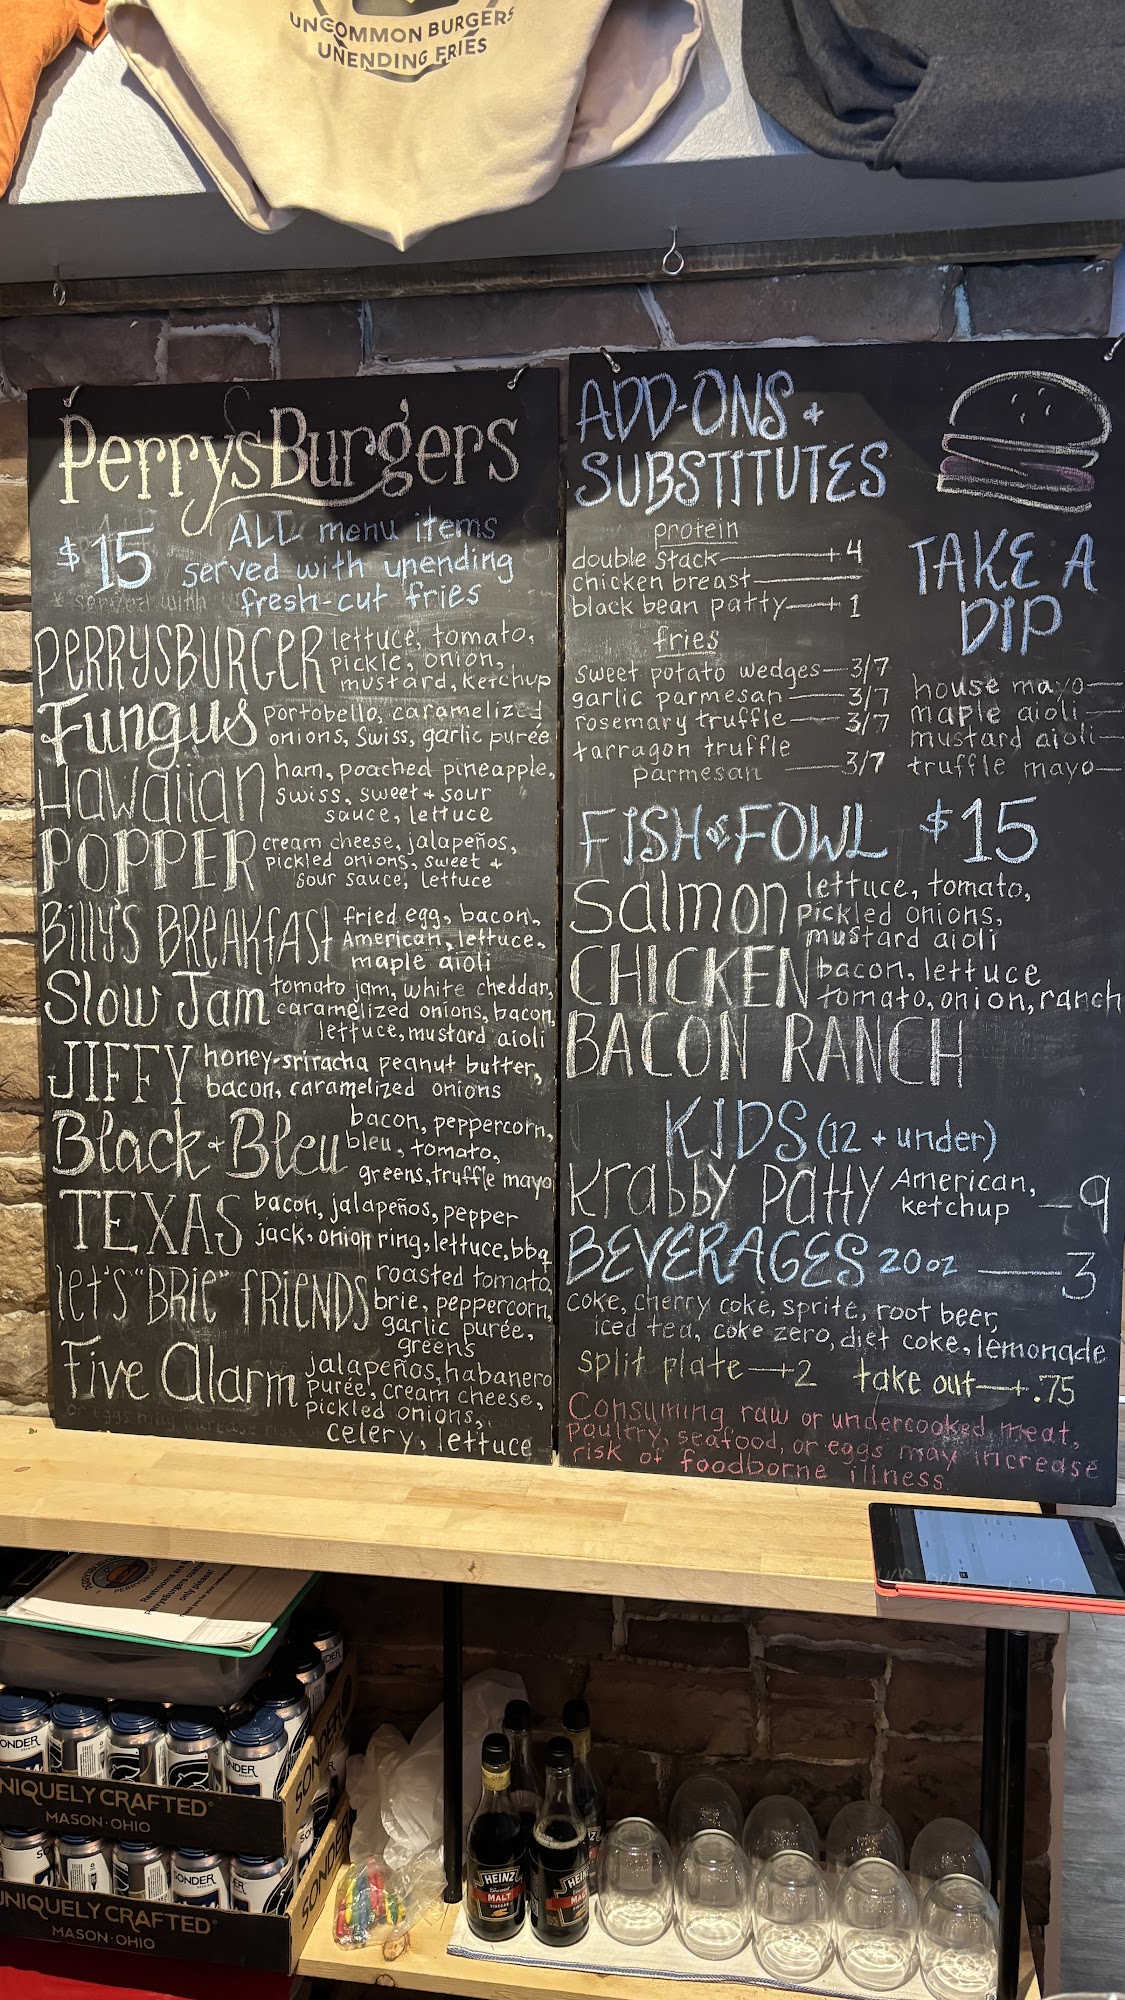 UNCOMMON BURGERS
UNENDING FRIES
PerrysBurgers
$15 ALL menu items
served with unending
fresh-cut fries
served with
PERRYSBURGER lettuce, tomato,
pickle, onion,
mustard, ketchup
Fungus portobello, caramelized
onions, Swiss, garlic purée
Hawaiian ham, poached pineapple,
Swiss, sweet + sour
sauce, lettuce
POPPER cream cheese, jalapeños,
pickled onions, sweet +
sour sauce, lettuce
Billy's BREAKfASt fried egg, bacon,
American, lettuce,
maple aioli
Slow Jam tomato jam, white cheddar,
caramelized onions, bacon,
lettuce, mustard aioli
JIFFY honey-sriracha peanut butter,
bacon, caramelized onions
Black + Bleu bacon, peppercorn,
bleu, tomato,
greens, truffle mayo
TEXAS bacon, jalapeños, pepper
jack, onion ring, lettuce, bbq
let's "BRIE" fRIENDS roasted tomato,
brie, peppercorn,
garlic purée,
greens
Five Alarm jalapeños, habanero
purée, cream cheese,
pickled onions,
celery, lettuce
or eggs may increase risk
ADD-ONS +
SUBSTITUTES
protein
double stack—+4
chicken breast—
black bean patty—+1
fries
sweet potato wedges—3/7
garlic parmesan—3/7
rosemary truffle—3/7
tarragon truffle
parmesan —3/7
TAKE A
DIP
house mayo—
maple aioli—
mustard aioli—
truffle mayo—
FISH or FOWL $15
Salmon lettuce, tomato,
pickled onions,
mustard aioli
CHICKEN bacon, lettuce
tomato, onion, ranch
BACON RANCH
KIDS (12 + under)
Krabby Patty American,
ketchup —9
BEVERAGES 20oz —3
coke, cherry coke, sprite, root beer,
iced tea, coke zero, diet coke, lemonade
split plate—+2 take out—+.75
Consuming raw or undercooked meat,
poultry, seafood, or eggs may increase
risk of foodborne illness.
Restrooms are
PerrysBurgers
only please!
SONDER
UNIQUELY CRAFTED
MASON·OHIO
SONDER
UNIQUELY CRAFTED
MASON·OHIO
HEINZ
MALT
VINEGAR
HEINZ
MALT